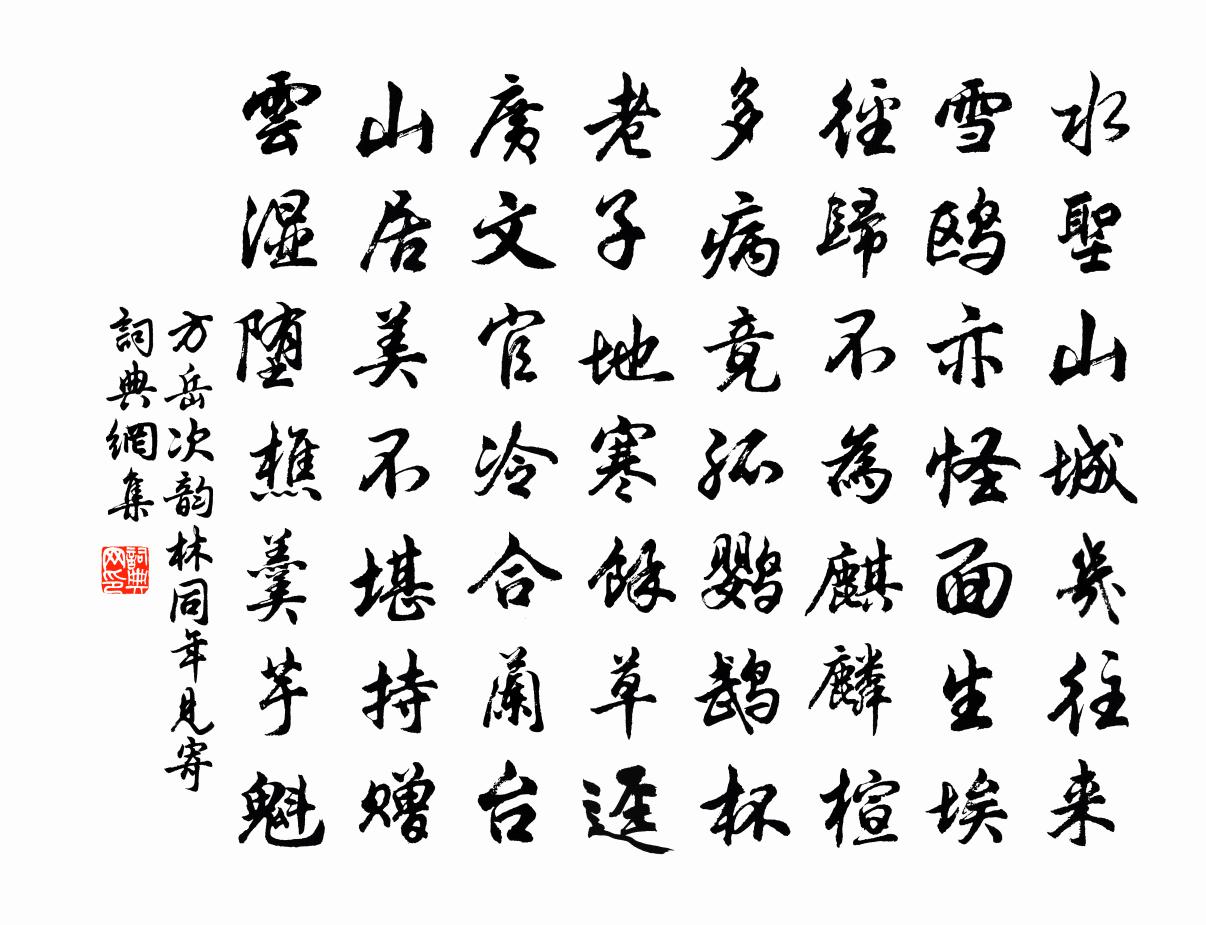 水聖山城幾往来
雪鸥亦怪面生埃
徑歸不為麒麟楦
多病竟孤鹦鹉杯
老子地寒餘草迳
廣文官冷合蘭台
山居美不堪持赠
雲湿堕樵羹芋魁
方岳次韵林同年見寄
詞典網集
詞典网印